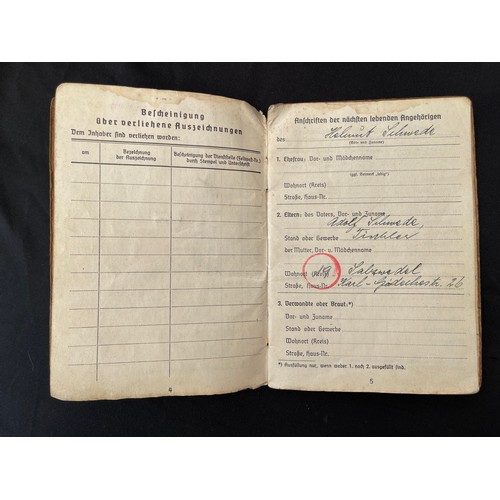 Bescheinigung
über verliehene Auszeichnungen
Dem Inhaber sind verliehen worden:
am
Bezeichnung
der Auszeichnung
Bescheinigung der Dienststelle (Feldpost-Nr.)
durch Stempel und Unterschrift
4
Anschriften der nächsten lebenden Angehörigen
des Helmut Schwede
(Vor- und Zuname)
1. Ehefrau: Vor- und Mädchenname
(ggf. Vermerk „ledig“)
Wohnort (Kreis)
Straße, Haus-Nr.
2. Eltern: des Vaters, Vor- und Zuname
Adolf Schwede
Stand oder Gewerbe Tischler
der Mutter, Vor- u. Mädchenname
Wohnort (Kreis) Salzwedel
Straße, Haus-Nr. Karl- 26
3. Verwandte oder Braut:*)
Vor- und Zuname
Stand oder Gewerbe
Wohnort (Kreis)
Straße, Haus-Nr.
*) Ausfüllung nur, wenn weder 1. noch 2. ausgefüllt sind.
5